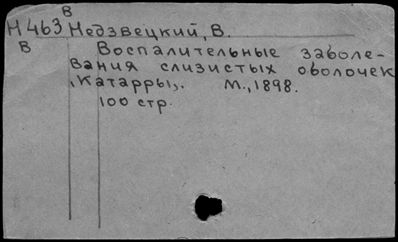 В
Н463 Недзвецкий, В.
В Воспалительные заболе-
вания слизистых оболочек
„Катарры„. М., 1898.
100 стр.